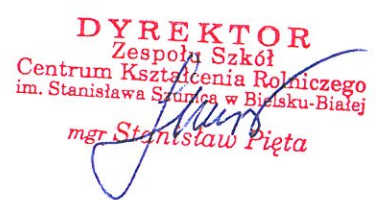 DYREKTOR
Zespołu Szkół
Centrum Kształcenia Rolniczego
im. Stanisława Szumca w Bielsku-Białej
mgr Stanisław Pięta